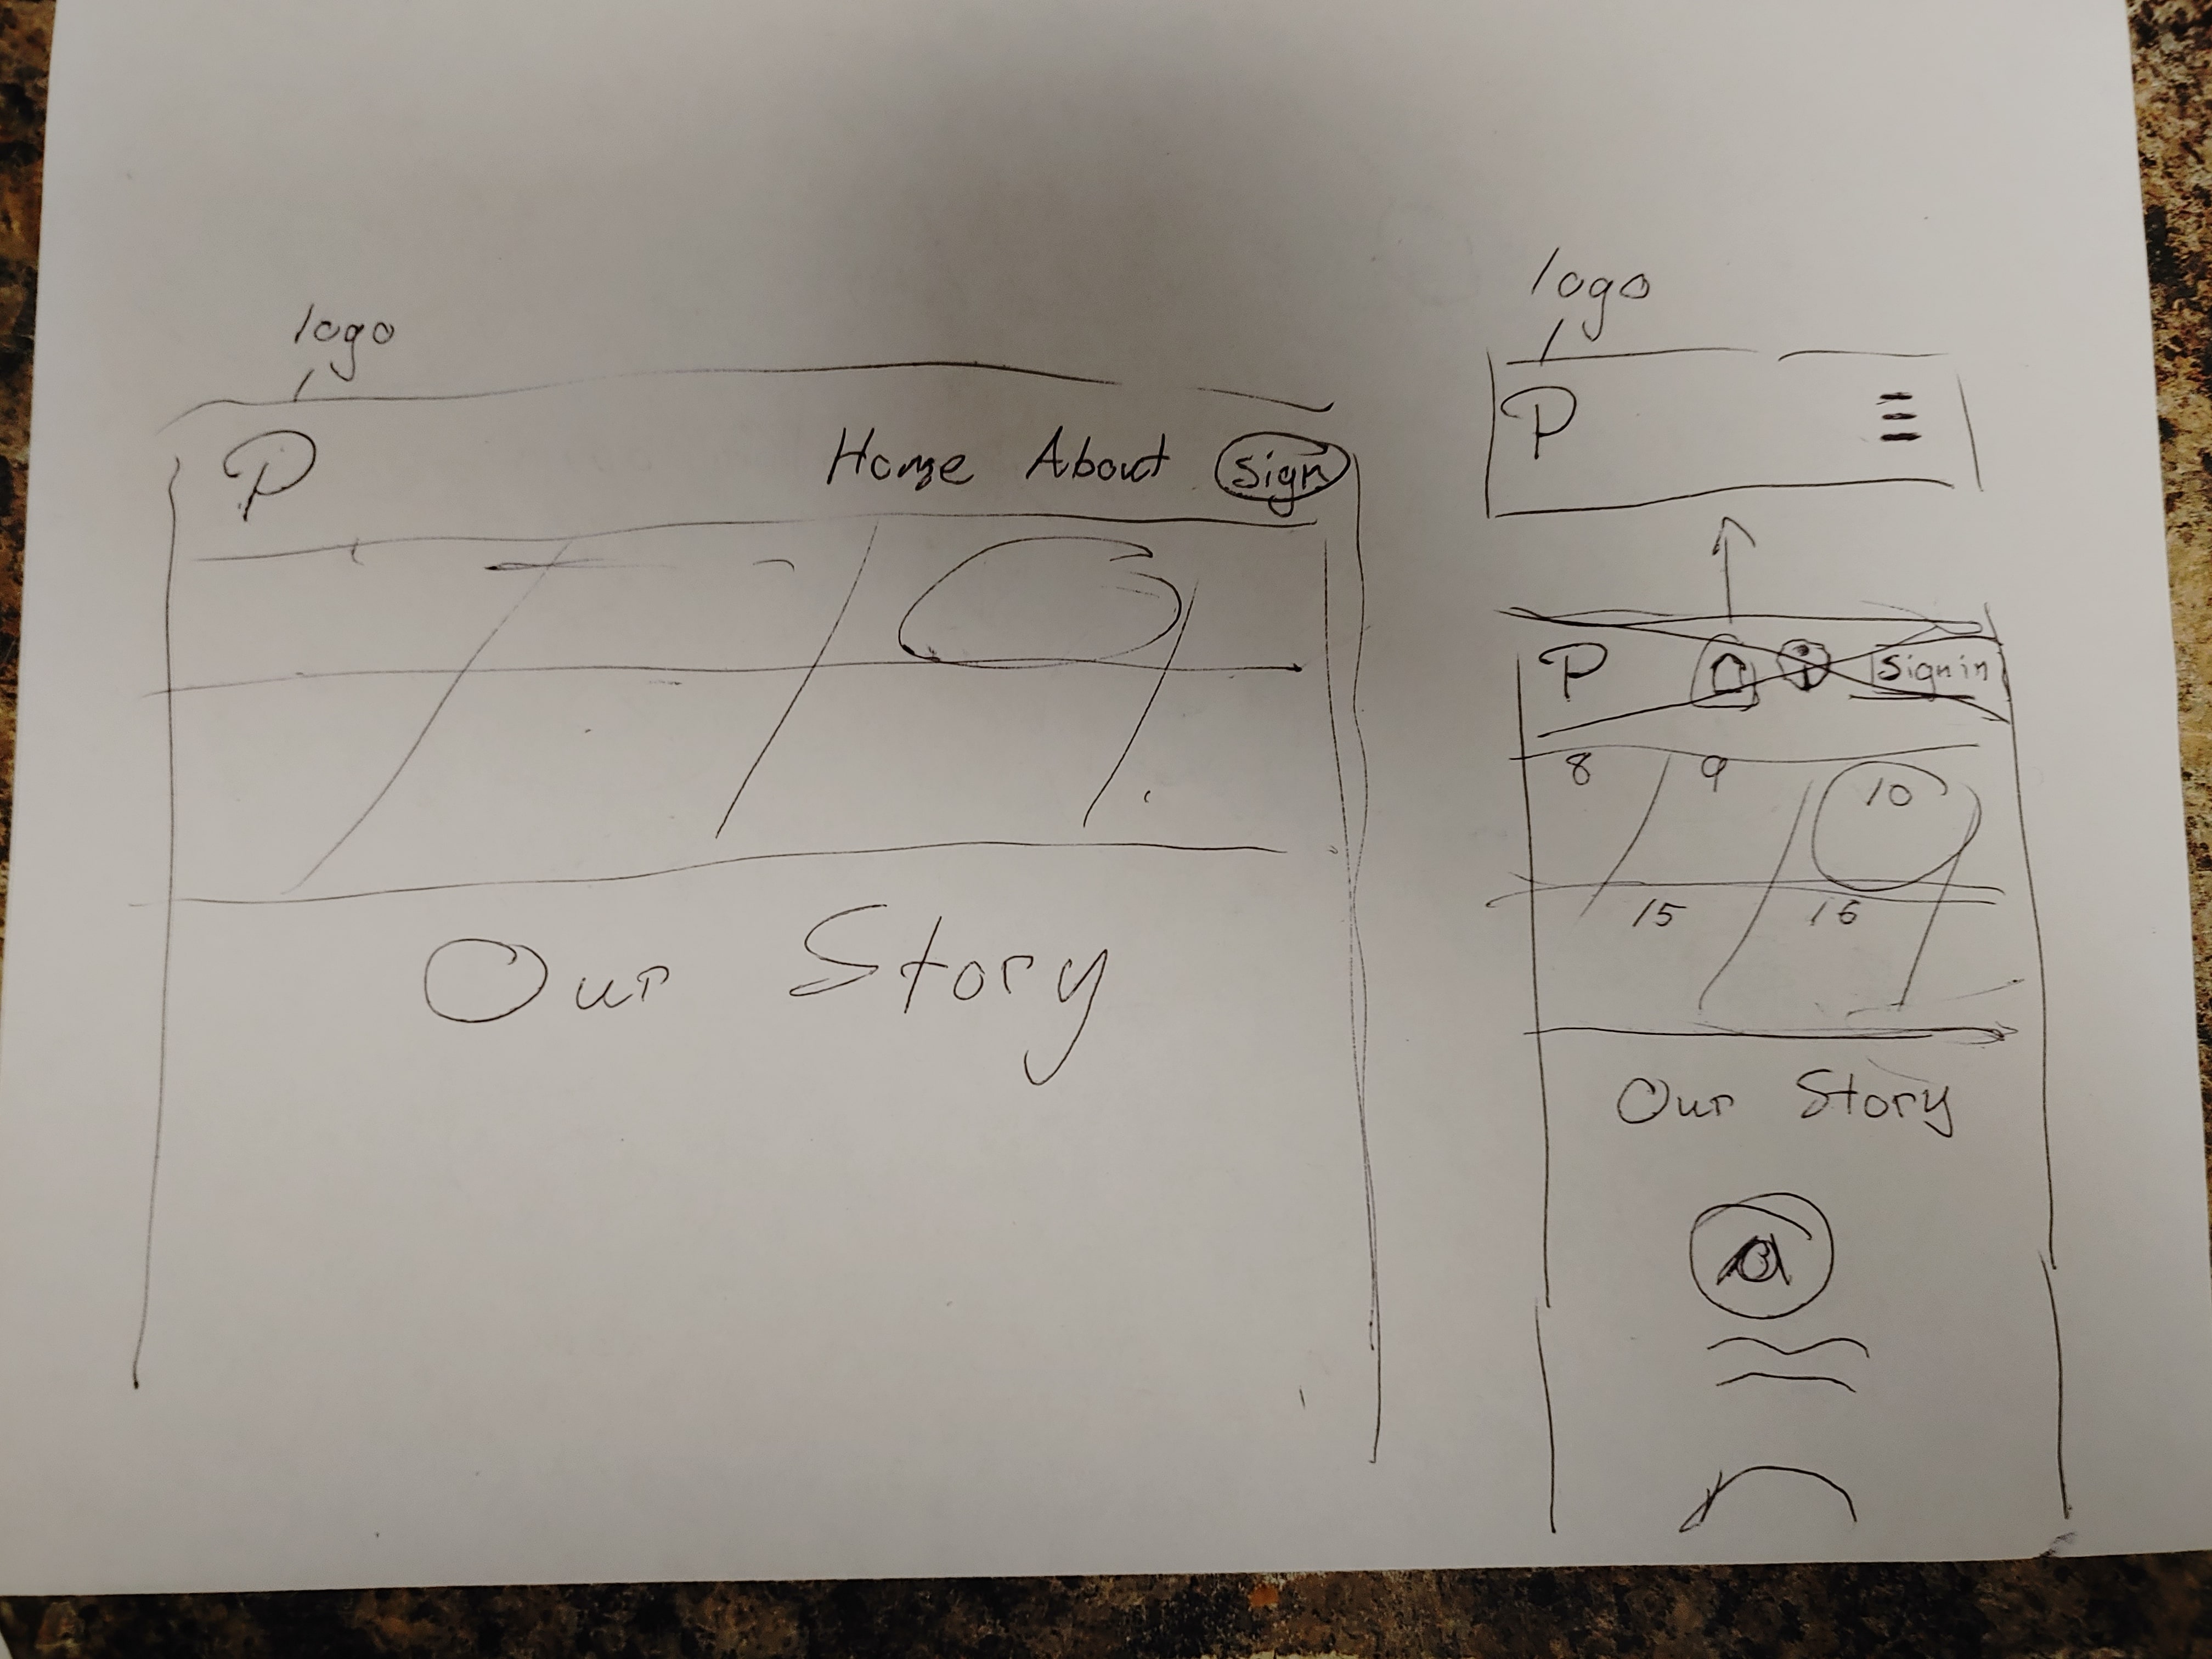 logo
P Home About Sign
Our Story
logo
P
P Sign in
8 9 10
15 16
Our Story